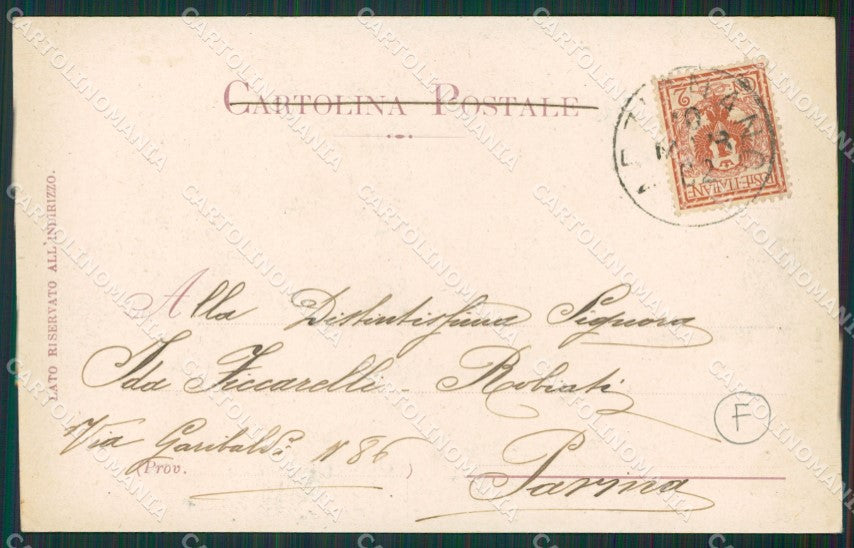 CARTOLINA POSTALE
LATO RISERVATO ALL'INDIRIZZO.
POSTE·ITALIANE
2
Alla Distintissima Signora
Ida Ficcarelli - Robiati
Via Garibaldi N 86
Prov.
Parma
F
CARTOLINOMANIA